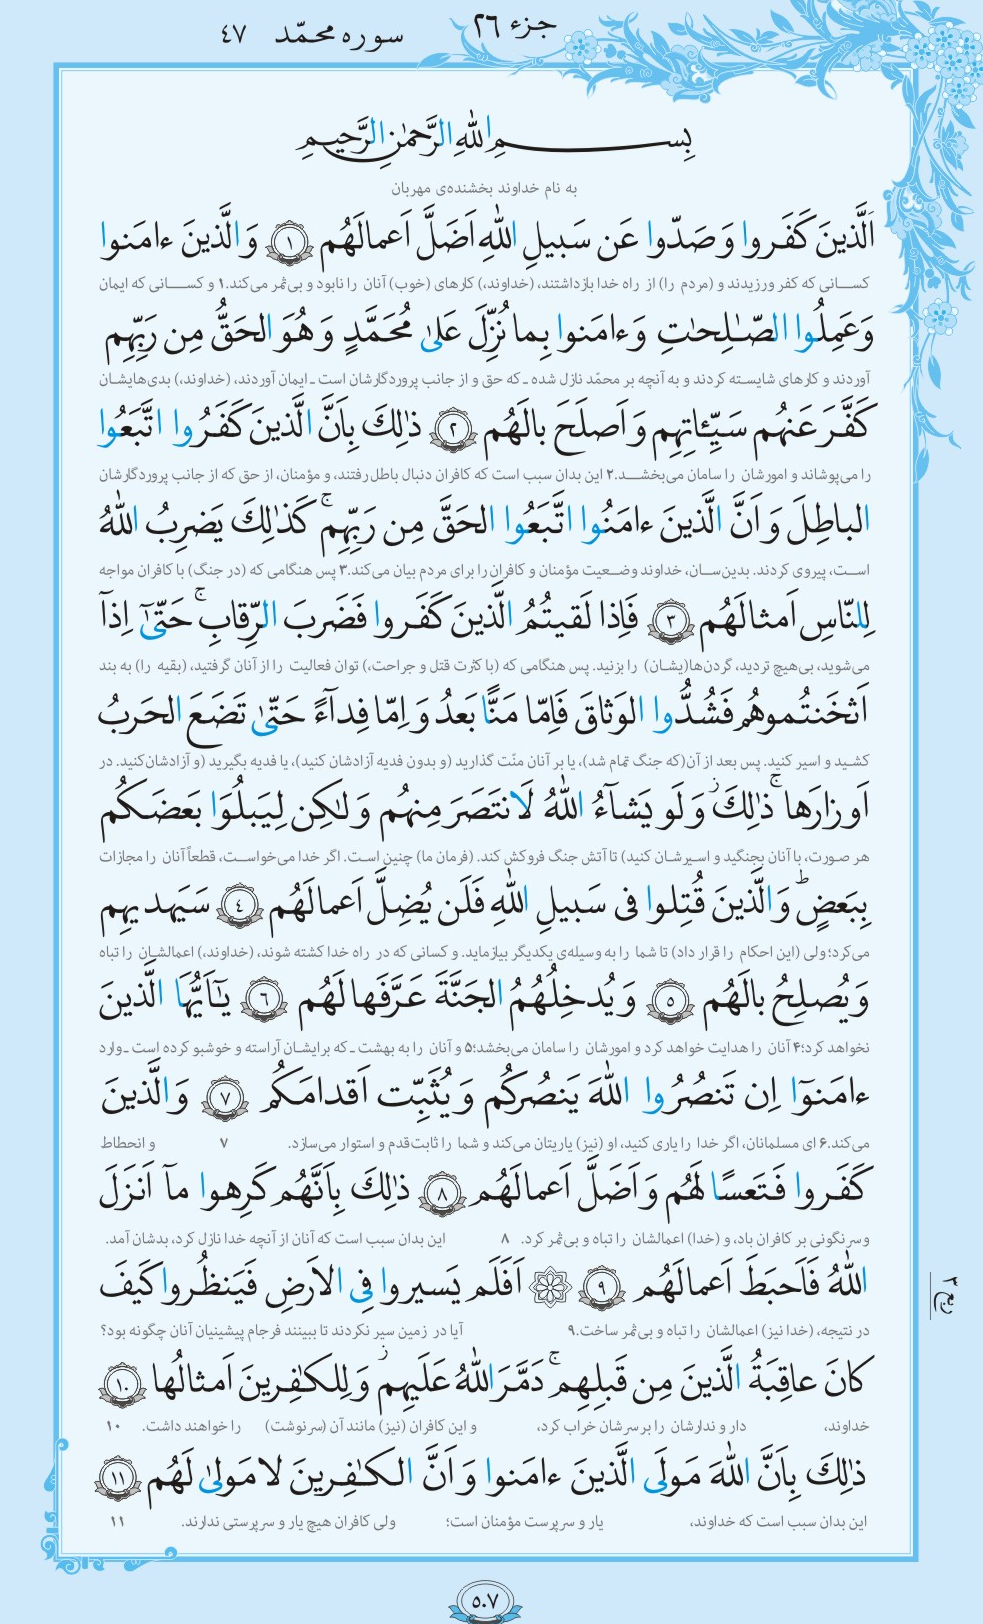 جزء ۲۶
سوره محمّد ۴۷
بِسـمِ اللّٰهِ الرَّحمٰنِ الرَّحیمِ
به نام خداوند بخشنده‌ی مهربان
اَلَّذینَ کَفَروا وَ صَدّوا عَن سَبیلِ اللّٰهِ اَضَلَّ اَعمالَهُم ۱ وَ الَّذینَ ءامَنوا
کسـانی که کفر ورزیدند و (مردم را) از راه خدا بازداشتند، (خداوند،) کارهای (خوب) آنان را نابود و بی‌ثمر می‌کند.۱ و کسـانی که ایمان
وَعَمِلُوا الصّٰلِحٰتِ وَءامَنوا بِما نُزِّلَ عَلیٰ مُحَمَّدٍ وَ هُوَ الحَقُّ مِن رَبِّهِم
آوردند و کارهای شایسته کردند و به آنچه بر محمّد نازل شده ـ که حق و از جانب پروردگارشان است ـ ایمان آوردند، (خداوند،) بدی‌هایشـان
کَفَّرَ عَنهُم سَیِّـٔاتِهِم وَ اَصلَحَ بالَهُم ۲ ذٰلِكَ بِاَنَّ الَّذینَ کَفَرُوا اتَّبَعُوا
را می‌پوشاند و امورشان را سامان می‌بخشـد.۲ این بدان سبب است که کافران دنبال باطل رفتند، و مؤمنان، از حق که از جانب پروردگارشان
الباطِلَ وَ اَنَّ الَّذینَ ءامَنُوا اتَّبَعُوا الحَقَّ مِن رَبِّهِم ۚ کَذٰلِكَ یَضرِبُ اللّٰهُ
اسـت، پیروی کردند. بدین‌سـان، خداوند وضـعیت مؤمنان و کافران را برای مردم بیان می‌کند.۳ پس هنگامی که (در جنگ) با کافران مواجه
لِلنّاسِ اَمثالَهُم ۳ فَاِذا لَقیتُمُ الَّذینَ کَفَروا فَضَربَ الرِّقابِ ۚ حَتّیٰٓ اِذآ
می‌شوید، بی‌هیچ تردید، گردن‌ها(یشان) را بزنید. پس هنگامی که (با کثرت قتل و جراحت،) توان فعالیت را از آنان گرفتید، (بقیه را) به بند
اَثخَنتُموهُم فَشُدُّوا الوَثاقَ فَاِمّا مَنًّا بَعدُ وَ اِمّا فِدآءً حَتّیٰ تَضَعَ الحَربُ
کشـید و اسیر کنید. پس بعد از آن(که جنگ تمام شد)، یا بر آنان منّت گذارید (و بدون فدیه آزادشان کنید)، یا فدیه بگیرید (و آزادشان‌کنید. در
اَوزارَها ۚ ذٰلِكَ ز وَ لَو یَشآءُ اللّٰهُ لَانتَصَرَ مِنهُم وَ لٰکِن لِیَبلُوَا بَعضَکُم
هر صورت، با آنان بجنگید و اسیرشـان کنید) تا آتش جنگ فروکش کند. (فرمان ما) چنین اسـت. اگر خدا می‌خواسـت، قطعاً آنان را مجازات
بِبَعضٍ ؕ وَالَّذینَ قُتِلوا فی سَبیلِ اللّٰهِ فَلَن یُضِلَّ اَعمالَهُم ۴ سَیَهدیهِم
می‌کرد؛ ولی (این احکام را قرار داد) تا شما را به وسیله‌ی یکدیگر بیازماید. و کسانی که در راه خدا کشته شوند، (خداوند،) اعمالشـان را تباه
وَ یُصلِحُ بالَهُم ۵ وَ یُدخِلُهُمُ الجَنَّةَ عَرَّفَها لَهُم ۶ یٰٓاَیُّهَا الَّذینَ
نخواهد کرد؛۴ آنان را هدایت خواهد کرد و امورشان را سامان می‌بخشد؛۵ و آنان را به بهشت ـ که برایشان آراسته و خوشبو کرده است ـ وارد
ءامَنوٓا اِن تَنصُرُوا اللّٰهَ یَنصُرکُم وَ یُثَبِّت اَقدامَکُم ۷ وَ الَّذینَ
می‌کند.۶ ای مسلمانان، اگر خدا را یاری کنید، او (نیز) یاریتان می‌کند و شما را ثابت‌قدم و استوار می‌سازد. ۷ و انحطاط
کَفَروا فَتَعسًا لَهُم وَ اَضَلَّ اَعمالَهُم ۸ ذٰلِكَ بِاَنَّهُم کَرِهوا مآ اَنزَلَ
و سرنگونی بر کافران باد، و (خدا) اعمالشان را تباه و بی‌ثمر کرد. ۸ این بدان سبب است که آنان از آنچه خدا نازل کرد، بدشان آمد.
اللّٰهُ فَاَحبَطَ اَعمالَهُم ۹ ۞ اَفَلَم یَسیروا فِی الاَرضِ فَیَنظُروا کَیفَ
در نتیجه، (خدا نیز) اعمالشان را تباه و بی‌ثمر ساخت.۹ آیا در زمین سیر نکردند تا ببینند فرجام پیشینیان آنان چگونه بود؟
کانَ عاقِبَةُ الَّذینَ مِن قَبلِهِم ۚ دَمَّرَ اللّٰهُ عَلَیهِم ز وَ لِلکٰفِرینَ اَمثالُها ۱۰
خداوند، دار و ندارشان را بر سرشان خراب کرد، و این کافران (نیز) مانند آن (سرنوشت) را خواهند داشت. ۱۰
ذٰلِكَ بِاَنَّ اللّٰهَ مَولَی الَّذینَ ءامَنوا وَ اَنَّ الکٰفِرینَ لا مَولیٰ لَهُم ۱۱
این بدان سبب است که خداوند، یار و سرپرست مؤمنان است؛ ولی کافران هیچ یار و سرپرستی ندارند. ۱۱
ربع ۲
۵۰۷